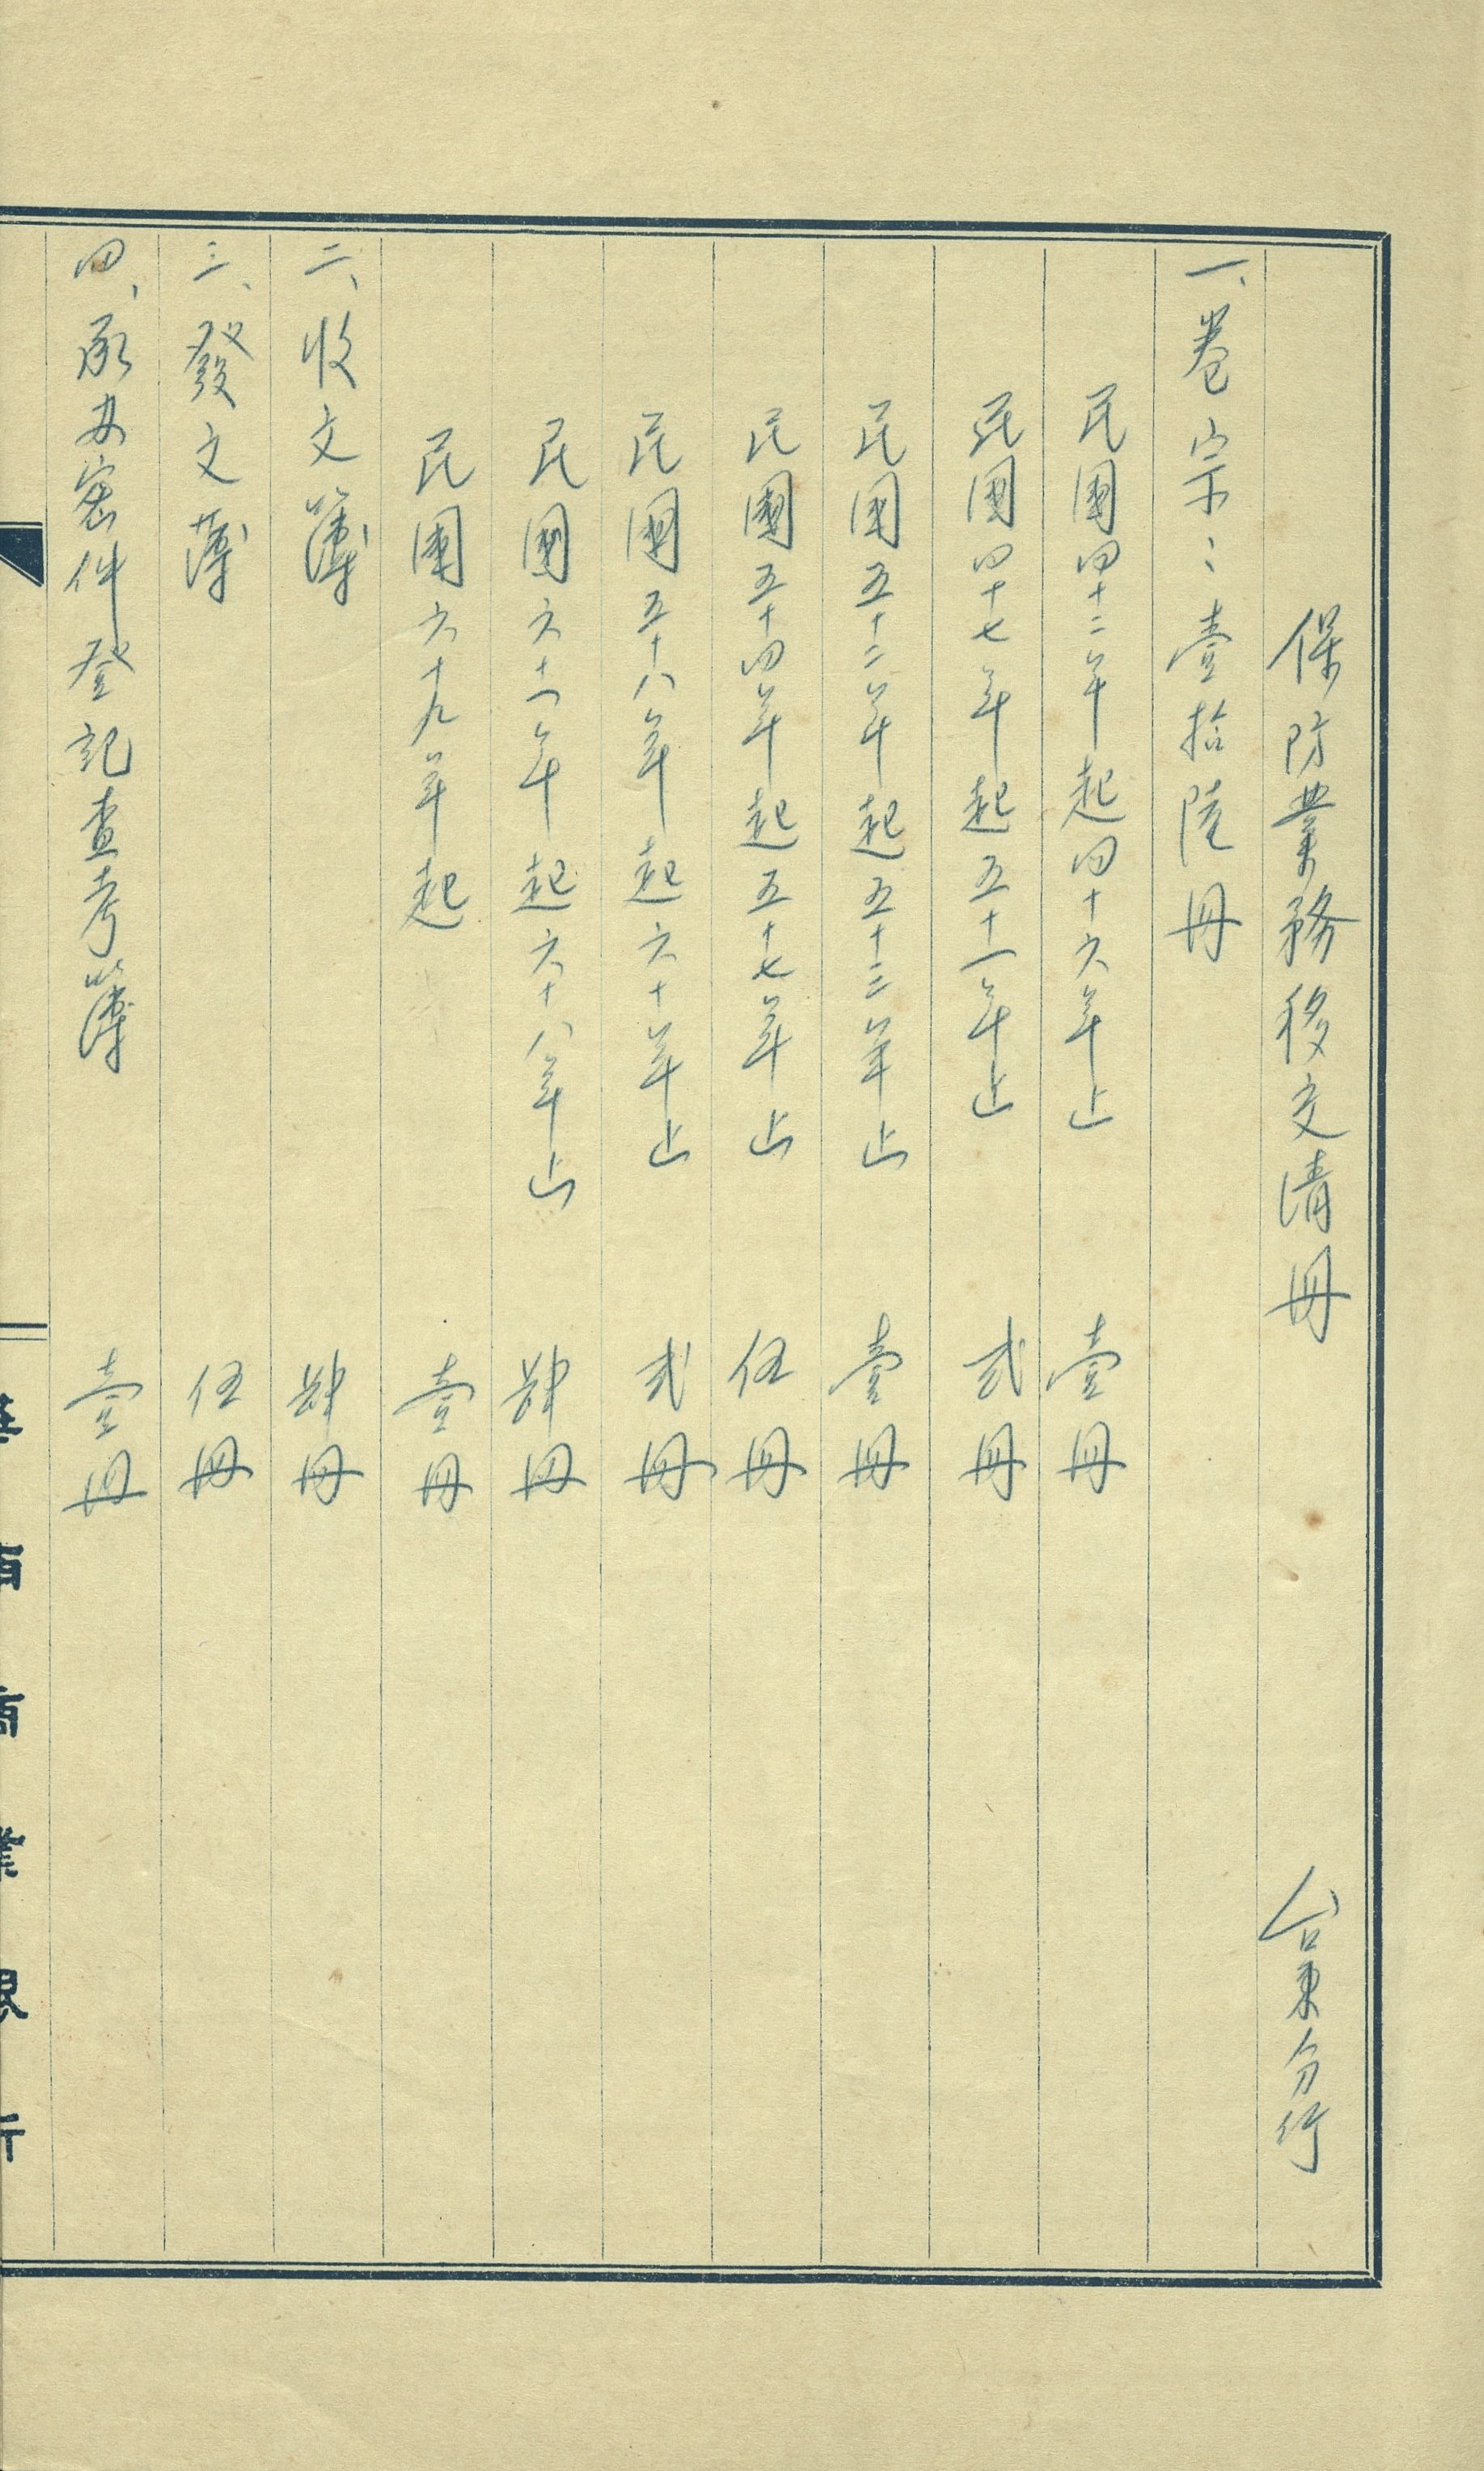 保防業務移交清冊 台東分行
一、卷宗：壹拾陸冊
民國四十二年起四十六年止 壹冊
民國四十七年起五十一年止 弍冊
民國五十二年起五十三年止 壹冊
民國五十四年起五十七年止 伍冊
民國五十八年起六十年止 弍冊
民國六十一年起六十八年止 肆冊
民國六十九年起 壹冊
二、收文簿 肆冊
三、發文薄 伍冊
四、承办密件登記查考簿 壹冊